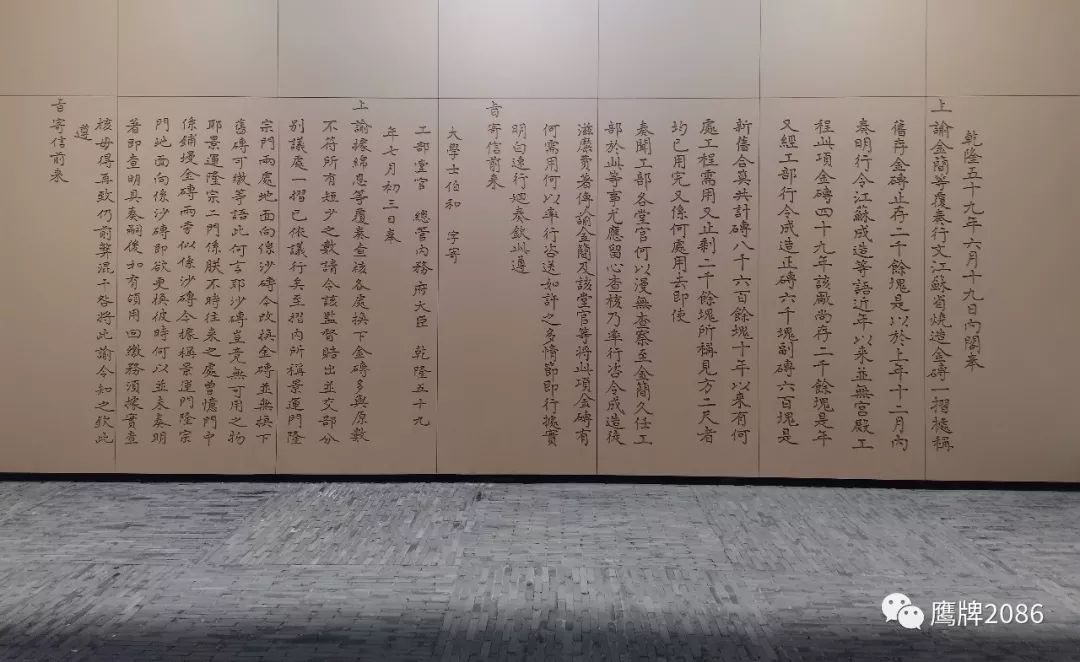 乾隆五十九年六月十九日內閣奉
上諭金簡等覆奏行文江蘇省燒造金磚一摺據稱
舊存金磚止存二千餘塊是以於上年十二月內
奏明行令江蘇成造等語近年以來並無宮殿工
程此項金磚四十九年該廠尚存二千餘塊是年
又經工部行令成造正磚六千塊副磚六百塊是
新舊合算共計磚八千六百餘塊十年以來有何
處工程需用又止剩二千餘塊所稱見方二尺者
均已用完又係何處用去即使
奏聞工部各堂官何以漫無查察至金簡久任工
部於此等事尤應留心查核乃率行咨令成造徒
滋糜費著傳諭金簡及該堂官等將此項金磚有
何需用何以率行咨送如許之多情節即行據實
明白速行迴奏欽此遵
旨寄信前來
大學士伯和 字寄
工部堂官 總管內務府大臣 乾隆五十九
年七月初三日奉
上諭據綿恩等覆奏查核各處換下金磚多與原數
不符所有短少之數請令該監督賠出並交部分
別議處一摺已依議行矣至摺內所稱景運門隆
宗門兩處地面向係沙磚今改換金磚並無換下
舊磚可繳等語此何言耶沙磚豈竟無可用之物
耶景運隆宗二門係朕不時往來之處曾憶門中
係鋪墁金磚兩旁似係沙磚今據稱景運門隆宗
門地面向係沙磚即欲更換彼時何以並未奏明
著即查明具奏嗣後如有領用回繳務須據實查
核毋得再致仍前弊混干咎將此諭令知之欽此
遵
旨寄信前來
鹰牌2086